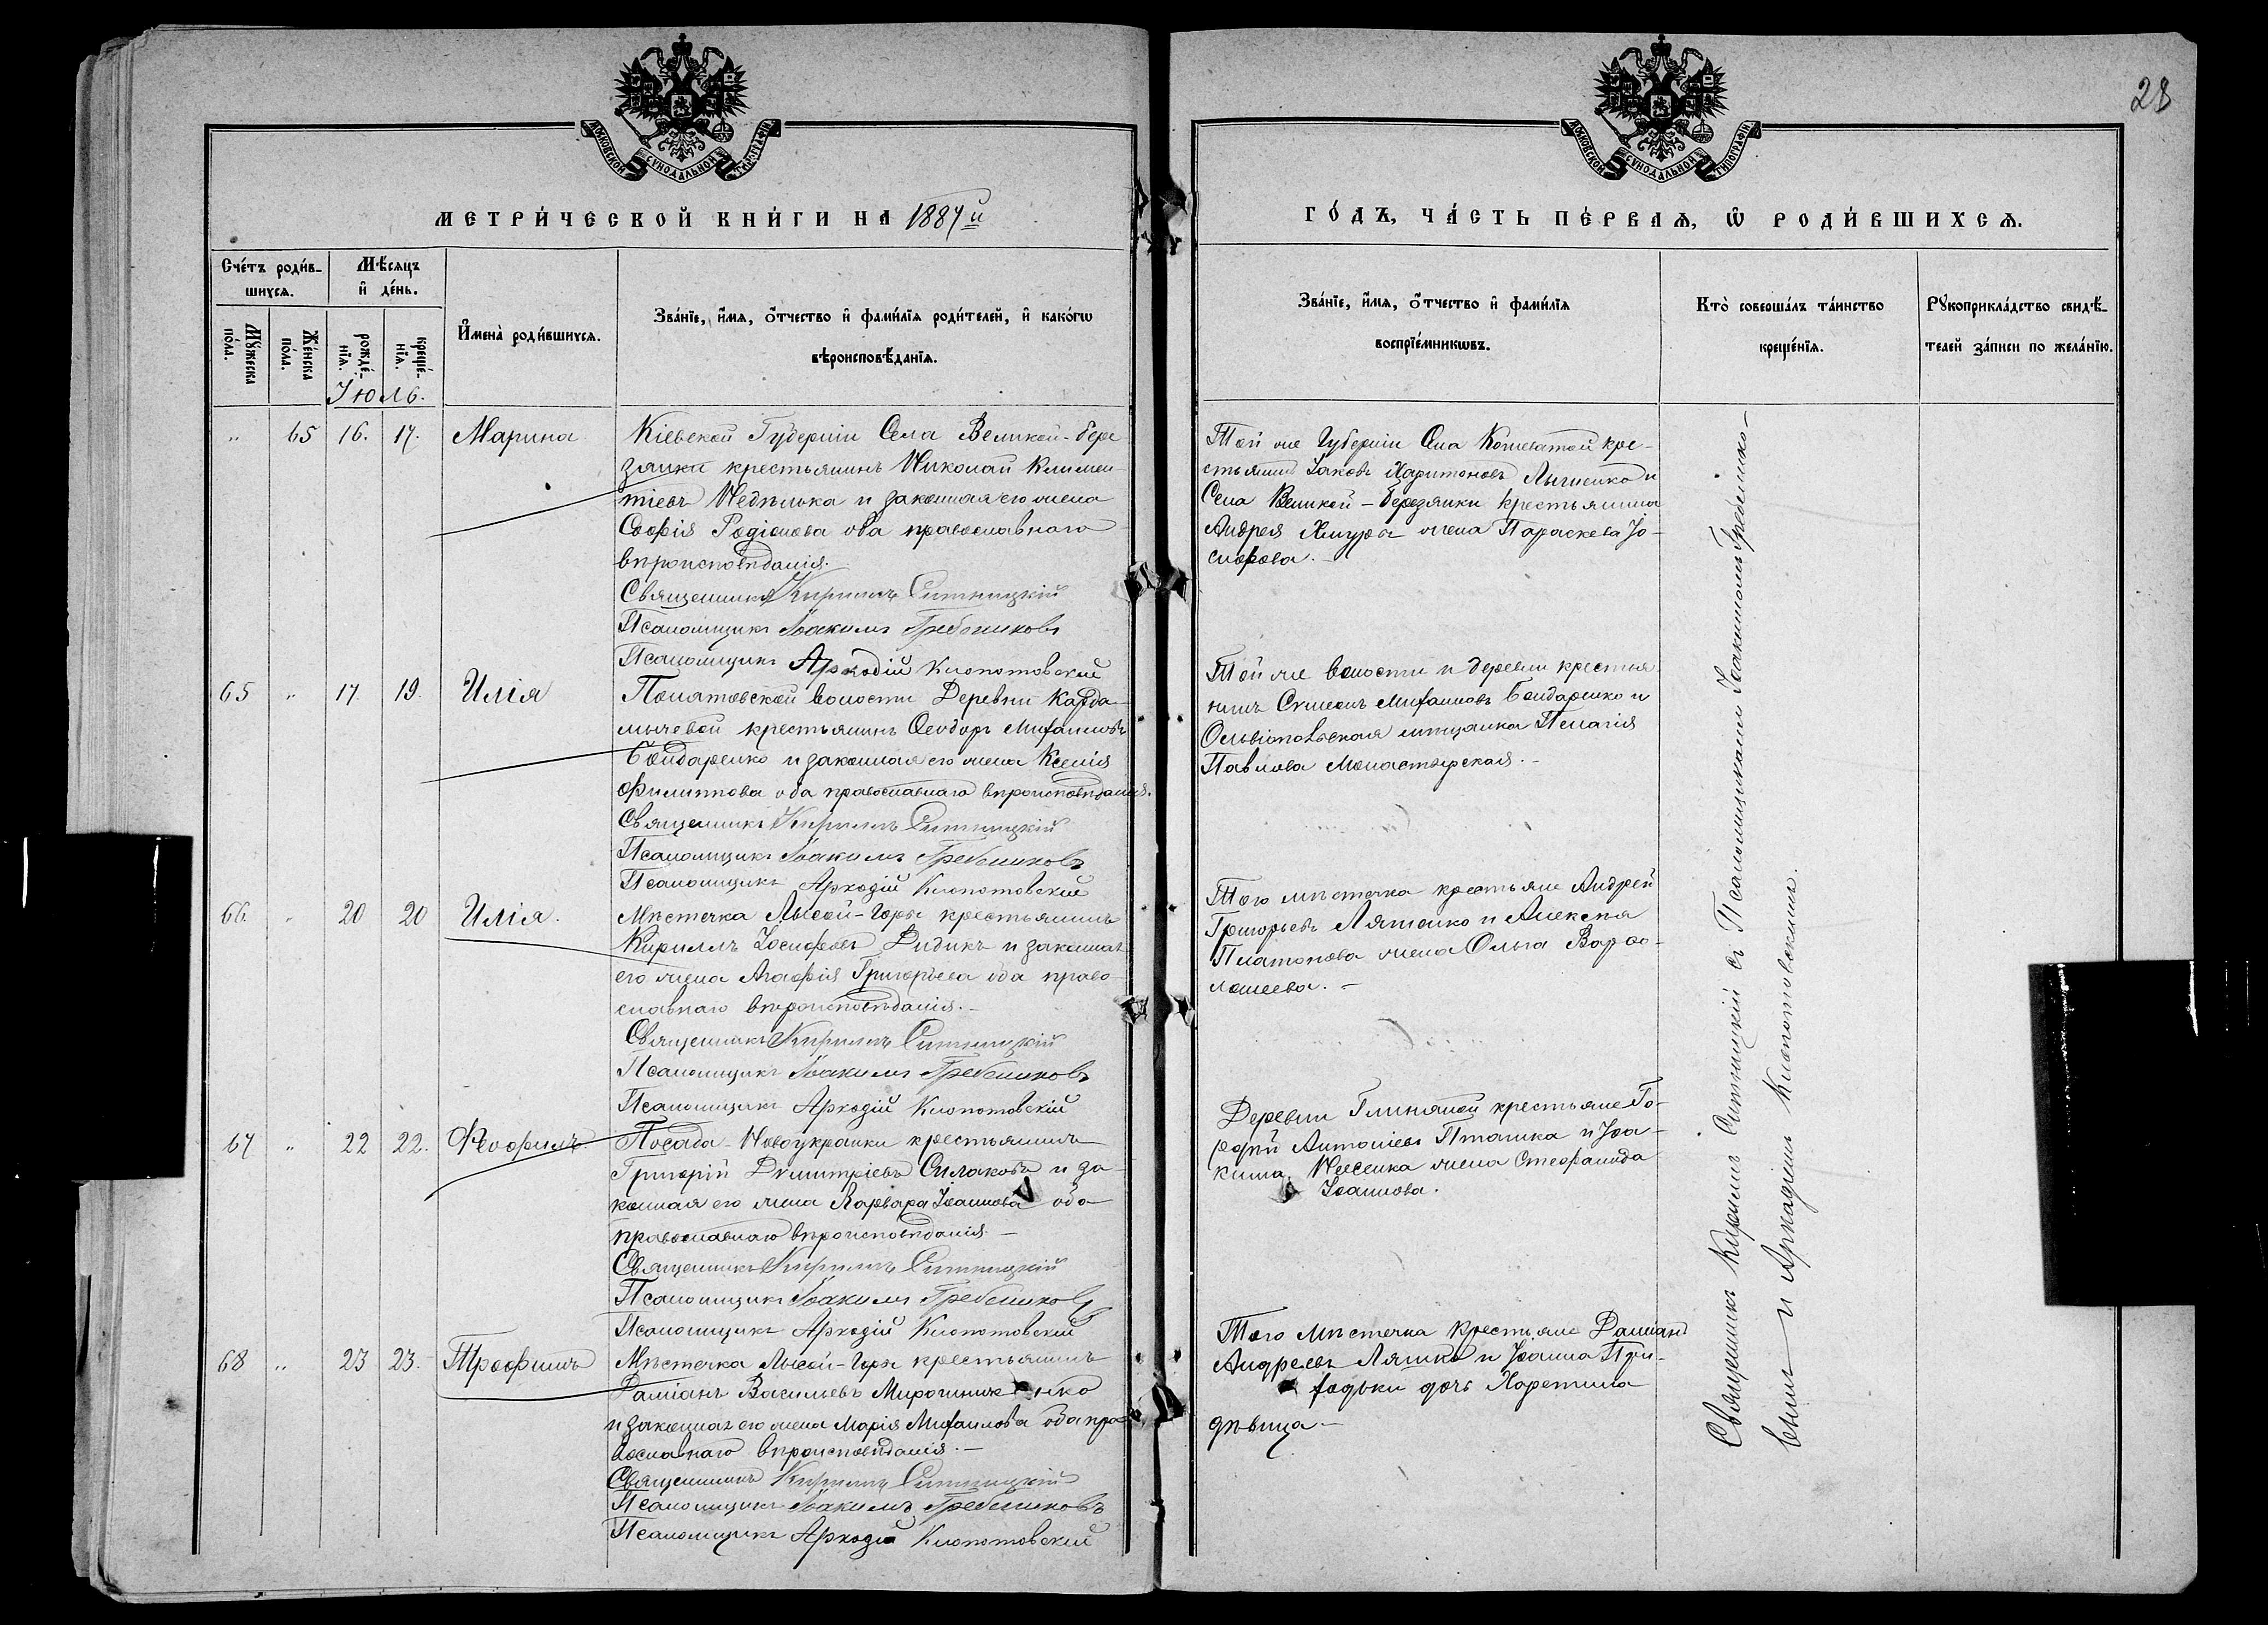 28
МОСКОВСКОЙ СѴНОДАЛЬНОЙ ТИПОГРАФІИ
МОСКОВСКОЙ СѴНОДАЛЬНОЙ ТИПОГРАФІИ
МЕТРИ́ЧЕСКОЙ КНИ́ГИ НА 1887й
ГО́ДЪ, ЧА́СТЬ ПЕ́РВАЯ, Ѡ҆ РОДИ́ВШИХСЯ.
Сче́тъ роди́в-
шихся.
Мѣ́сяцъ
и҆ де́нь.
Мꙋ́жеска по́ла.
Же́нска по́ла.
рожде́-нїя.
креще́-нїя.
И҆мена̀ роди́вшихся.
Зва́нїе, и҆́мя, ѻ҆́тчество и҆ фами́лїя роди́телей, и҆ како́гѡ
вѣроисповѣ́данїя.
Зва́нїе, и҆́мя, ѻ҆́тчество и҆ фами́лїя
воспрїе́мникѡвъ.
Кто̀ соверша́лъ та́инство
креще́нїя.
Рꙋкоприкла́дство свидѣ́-
телей за́писи по жела́нїю.
Іюль.
" 65 16. 17. Марина
Кіевской Губерніи Села Великой-Бере
зянки крестьянинъ Николай Климен-
тіевъ Недѣлька и законная его жена
Софія Родіонова оба православнаго
вѣроисповѣданія.
Священникъ Кириллъ Ситницкій
Псаломщикъ Іоакимъ Гребениковъ
Псаломщикъ Аркадій Клопотовскій
Той же Губерніи Села кре-
стьянинъ Іаковъ Харитоновъ и
Села Великой-Березянки крестьянина
Андрея жена Параскева Іо-
сифова.-
65 " 17. 19. Илія
волости Деревни Карда-
мычевой крестьянинъ Ѳеодоръ Михаиловъ
Бондаренко и законная его жена Ксенія
Филиппова оба православнаго вѣроисповѣданія.
Священникъ Кириллъ Ситницкій
Псаломщикъ Іоакимъ Гребениковъ
Псаломщикъ Аркадій Клопотовскій
Той же волости и деревни крестья
нинъ Симеонъ Михаиловъ Бондаренко и
Ольвіопольская мѣщанка Пелагія
Павлова Монастырская.-
66. " 20 20 Илія.
Мѣстечка Лысой-Горы крестьянинъ
Кириллъ Іосифовъ Дидикъ и законная
его жена Агафія Григорьева оба право-
славнаго вѣроисповѣданія.-
Священникъ Кириллъ Ситницкій
Псаломщикъ Іоакимъ Гребениковъ
Псаломщикъ Аркадій Клопотовскій
Того мѣстечка крестьяне Андрей
Григорьевъ Ляшенко и Алексѣя
Платонова жена Ольга Варѳо-
ломеева.-
67 " 22 22. Феофилъ
Посада Новоукраинки крестьянинъ
Григорій Димитріевъ и за-
конная его жена Варвара Іоаннова оба
православнаго вѣроисповѣданія.-
Священникъ Кириллъ Ситницкій
Псаломщикъ Іоакимъ Гребениковъ
Псаломщикъ Аркадій Клопотовскій
Деревни Глиняной крестьяне Го-
рдѣй Антоніевъ Пташка и Іоа-
кима жена Стефанида
Іоаннова.
68 " 23 23.- Трофимъ
Мѣстечка Лысой-Горы крестьянинъ
Даміанъ Васильевъ Мирошниченко
и законная его жена Марія Михаилова оба пра
вославнаго вѣроисповѣданія.-
Священникъ Кириллъ Ситницкій
Псаломщикъ Іоакимъ Гребениковъ
Псаломщикъ Аркадій Клопотовскій
Того мѣстечка крестьяне Даміанъ
Андреевъ Ляшко и Іоанна
дочь Харитина
дѣвица-
Священникъ Кириллъ Ситницкій съ Псаломщиками Іоакимомъ Гребенико-
вымъ и Аркадіемъ Клопотовскимъ.